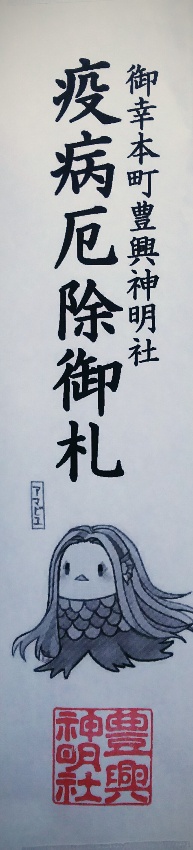 御幸本町豊興神明社
疫病厄除御札
アマビエ
豊興
神明社